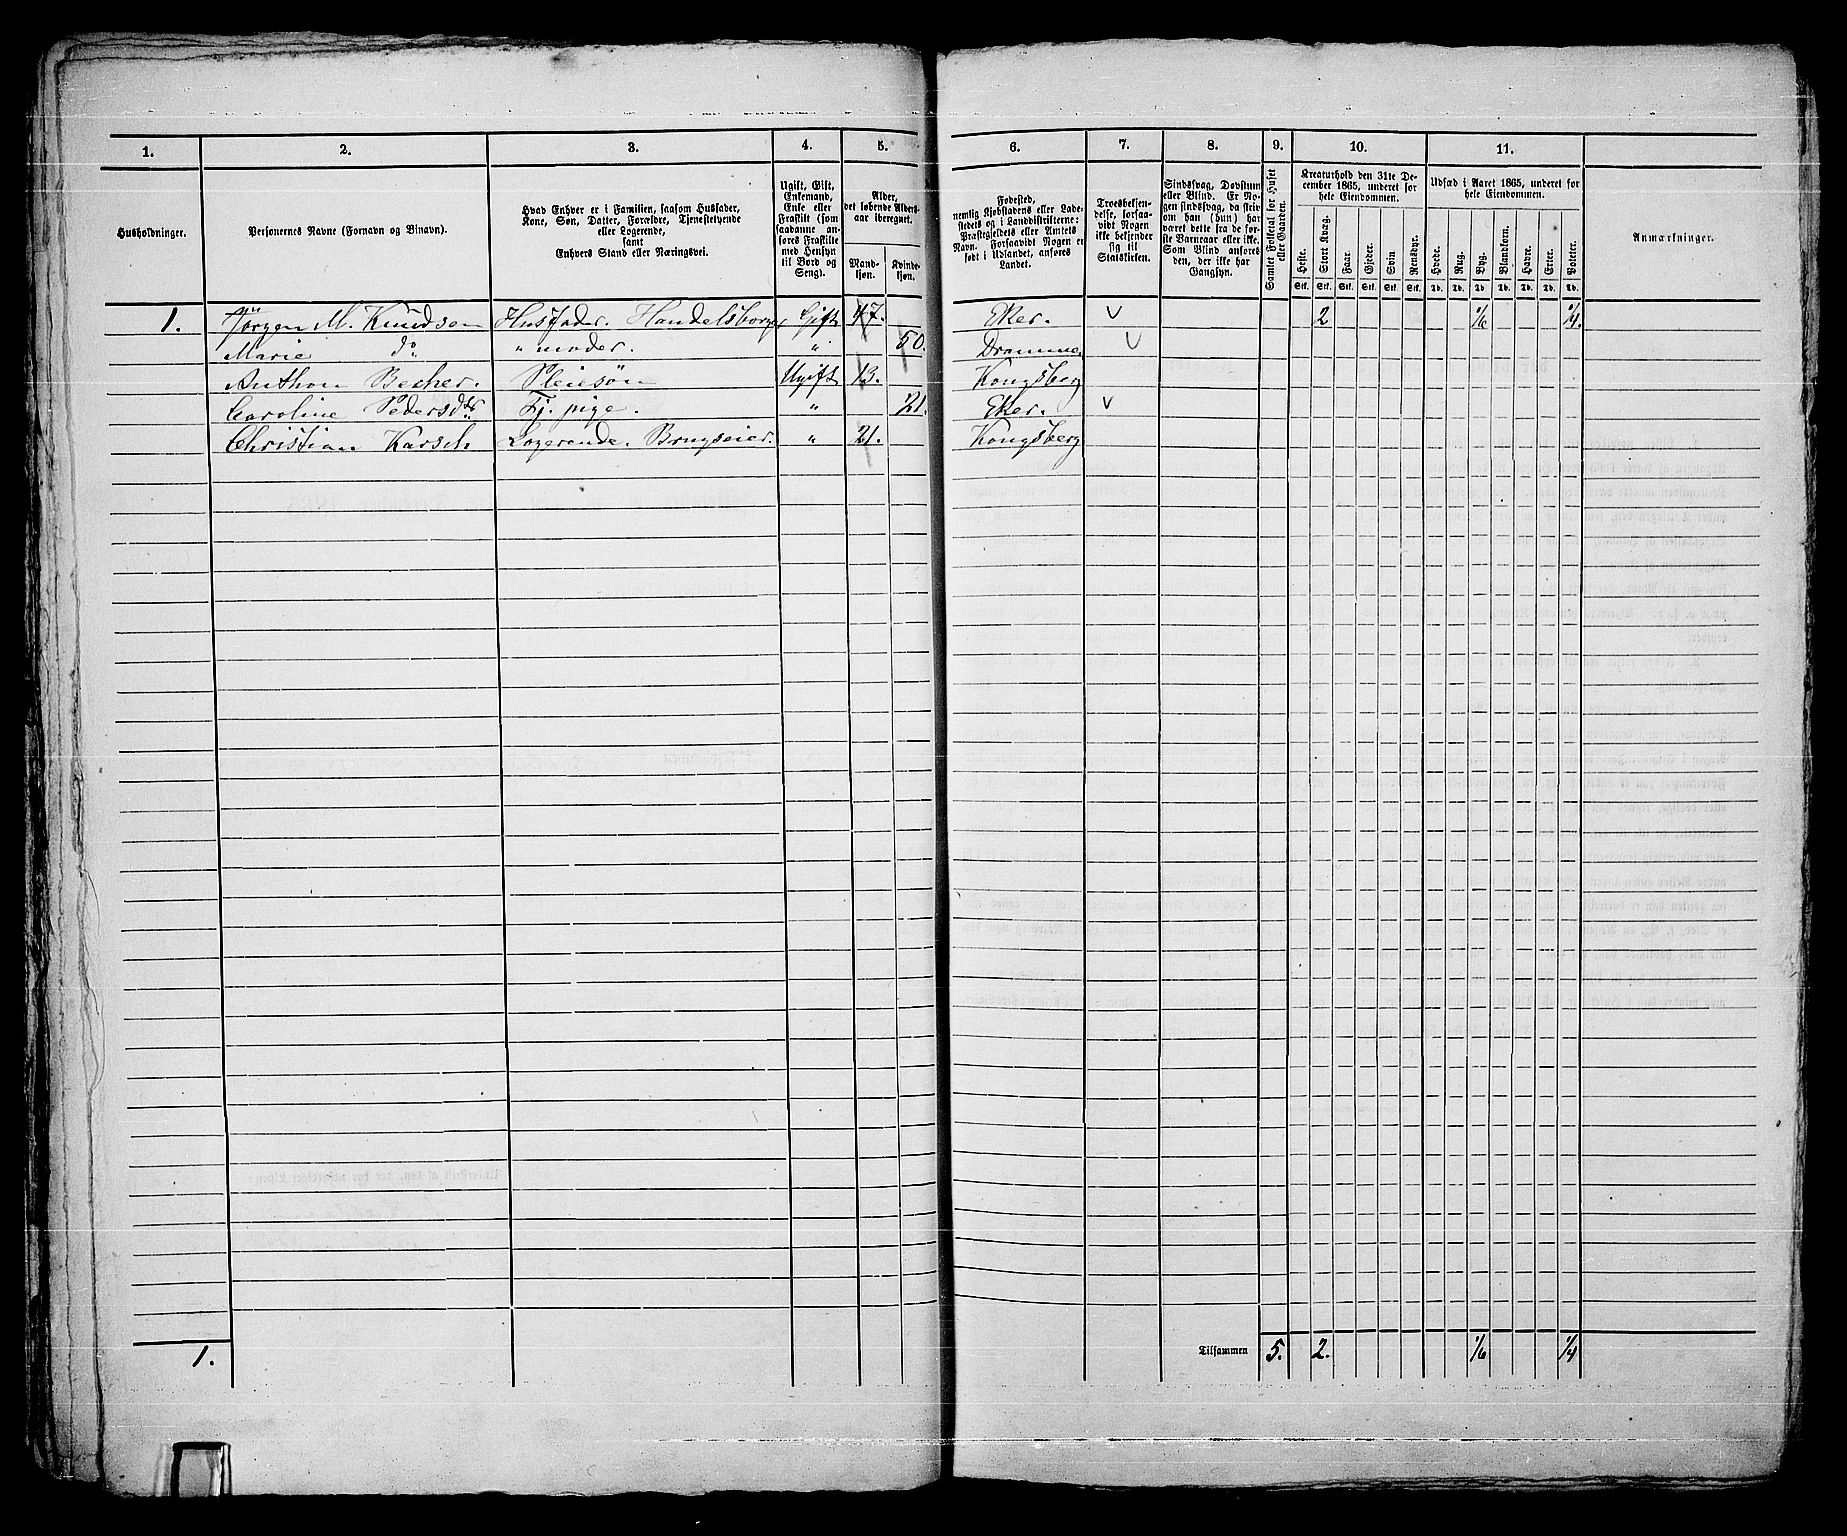 1. 2. 3. 4. 5. 6. 7. 8. 9. 10. 11.
Husholdninger.
Personernes Navne (Fornavn og Binavn).
Hvad Enhver er i Familien, saasom Husfader,
Kone, Søn, Datter, Forældre, Tjenestetyende
eller Logerende,
samt
Enhvers Stand eller Næringsvei.
Ugift, Gift,
Enkemand,
Enke eller
Fraskilt (som
saadanne an-
føres Fraskilte
med Hensyn
til Bord og
Seng).
Alder,
det løbende Alders-
aar iberegnet.
Mand-
kjøn.
Kvinde-
kjøn.
Fødested,
nemlig Kjøbstadens eller Lade-
stedets og i Landdistrikterne:
Præstegjeldets eller Amtets
Navn. Forsaavidt Nogen er
født i Udlandet, anføres
Landet.
Troesbekjen-
delse, forsaa-
vidt Nogen
ikke bekjender
sig til
Statskirken.
Sindssvag, Døvstum
eller Blind. Er No-
gen sindssvag, da skriv
om han (hun) har
været dette fra de før-
ste Barneaar eller ikke.
Som Blind anføres
den, der ikke har
Gangsyn.
Samlet Folketal for Huset
eller Gaarden.
Kreaturhold den 31te De-
cember 1865, underet for
hele Eiendommen.
Heste. Stort Kvæg. Faar. Gjeder. Svin Rensdyr.
Stk. Stk. Stk. Stk. Stk. Stk.
Udsæd i Aaret 1865, underet for
hele Eiendommen.
Hvede. Rug. Byg. Blandkorn. Havre. Erter. Poteter.
Td. Td. Td. Td. Td. Td. Td.
Anmærkninger.
1. Jørgen M. Knudsen Husfader. Handelsborger Gift 47. Eker. v 2 1/6 1/4.
Marie do " moder. " 50. Drammen v
Anthon Becher. Pleiesøn Ugift 13. Kongsberg
Caroline Pedersdtr Tj. pige. " 21. Eker. v
Christian Karsch Logerende. Brugseier. " 21. Kongsberg
1. Tilsammen 5. 2. 1/6 1/4